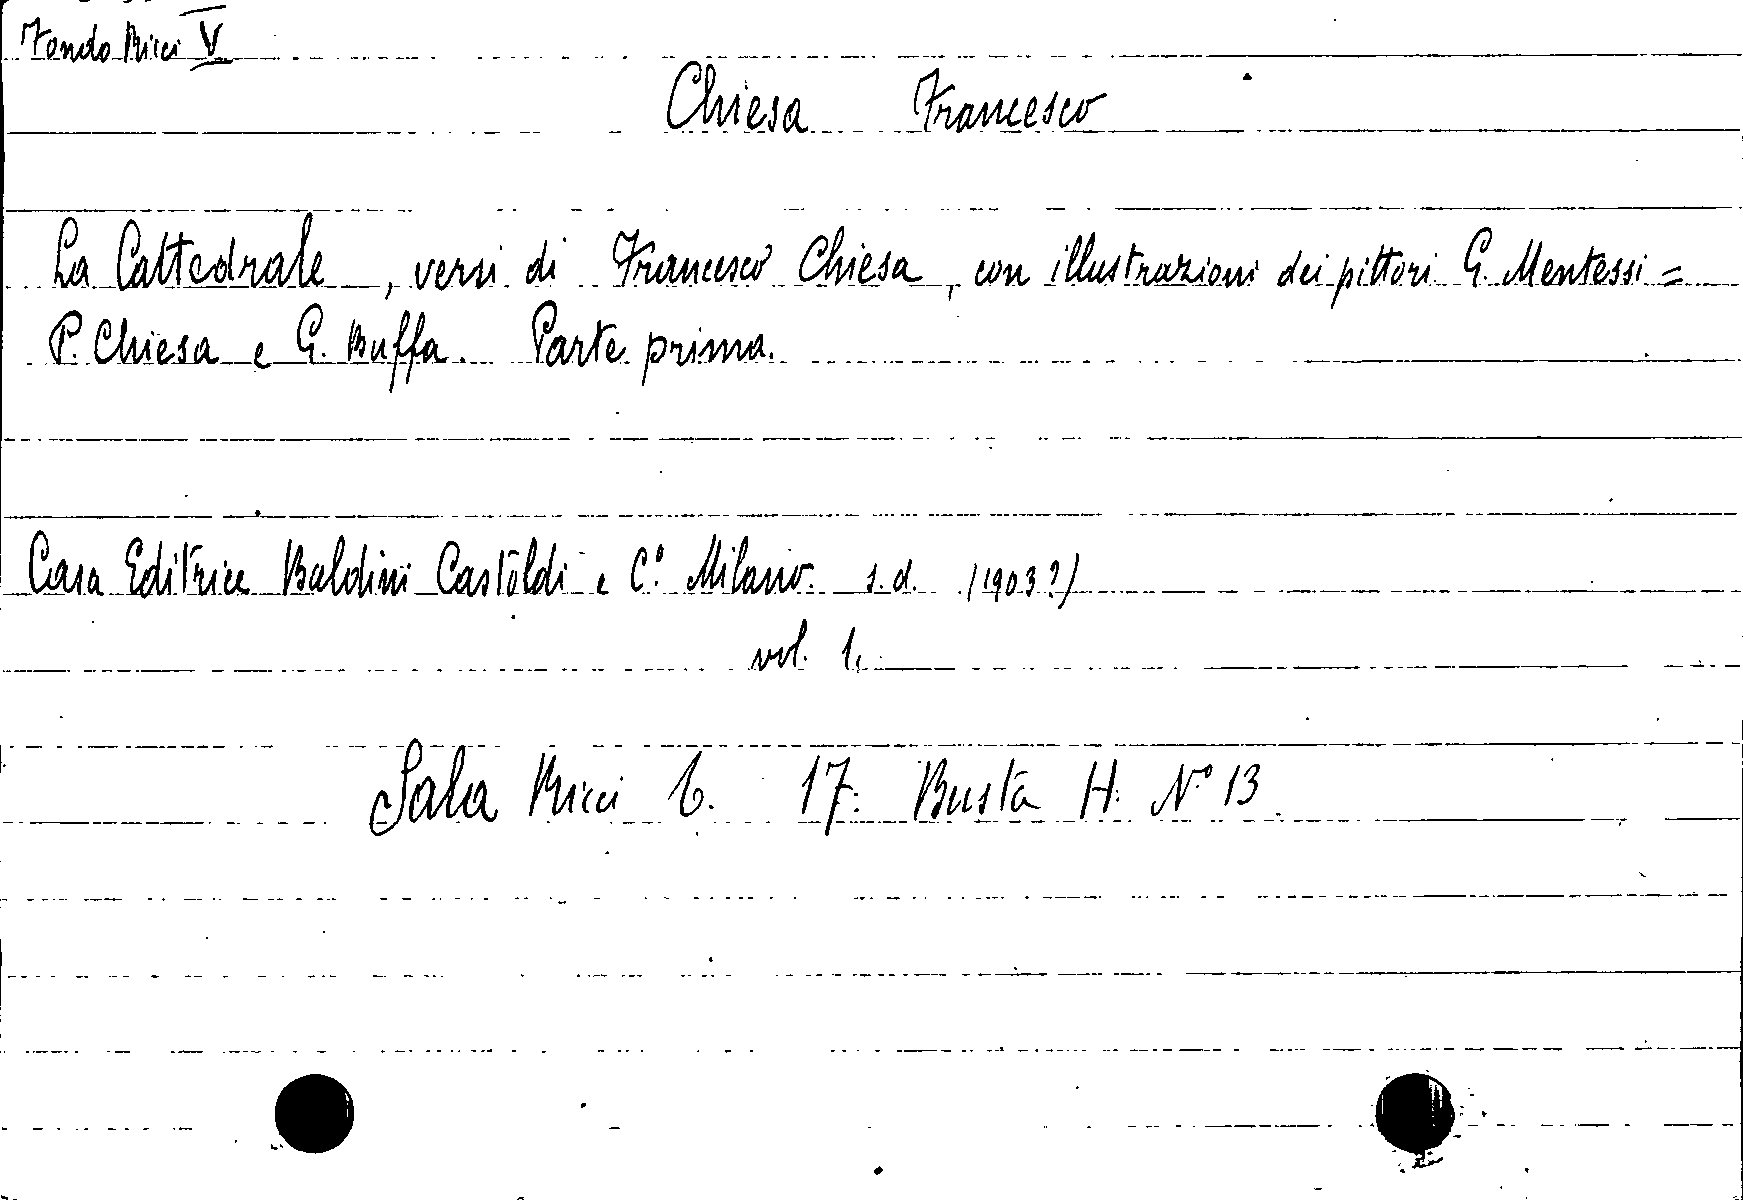 Fondo Ricci V
Chiesa Francesco
La Cattedrale, versi di Francesco Chiesa, con illustrazioni dei pittori G. Mentessi =
P. Chiesa e G. Buffa. Parte prima.
Casa Editrice Baldini Castoldi e C.º Milano. s.d. (1903?)
vol. 1.
Sala Ricci 6. 17. Busta H. Nº 13